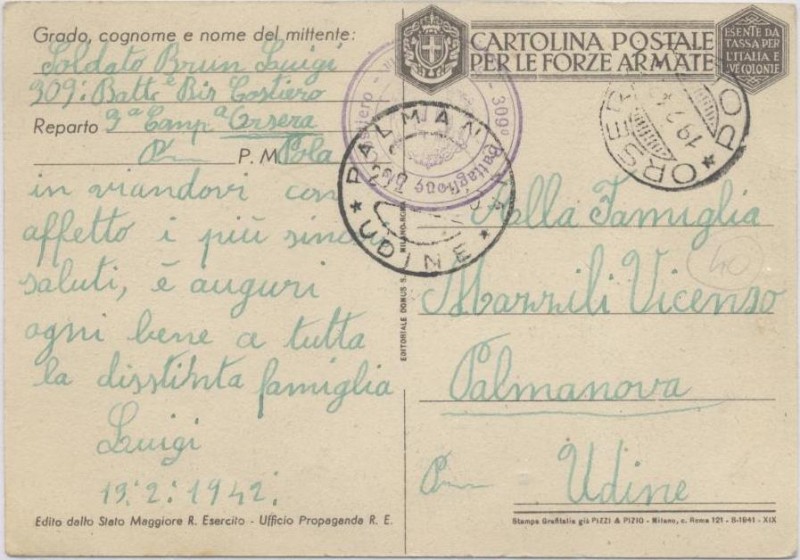 Grado, cognome e nome del mittente:
Soldato Brun Luigi
309: Battᵉ Bis Costiero
Reparto 3ª Campª Orsera
P. M. Pola
in viandovi con
affetto i più sinceri
saluti, é auguri
ogni bene a tutta
la disstinta famiglia
Luigi
19: 2: 1942:
Edito dallo Stato Maggiore R. Esercito - Ufficio Propaganda R. E.
EDITORIALE DOMUS S.
MILANO-ROMA
309º Battaglione
PALMANOVA
* UDINE *
CARTOLINA POSTALE
PER LE FORZE ARMATE
ESENTE DA
TASSA PER
L'ITALIA E
VE COLONIE
ORSERA * PO
19 2
Alla Famiglia
Marrili Vicenso
40
Palmanova
Udine
Stampa Grafitalia già PIZZI & PIZIO - Milano, c. Roma 121 - 8-1941 - XIX